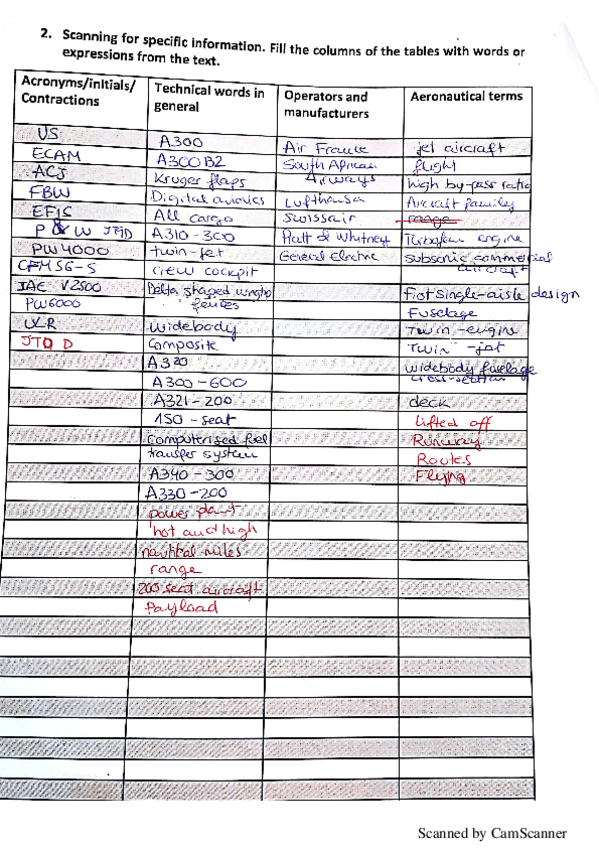 2. Scanning for specific information. Fill the columns of the tables with words or
expressions from the text.
Acronyms/initials/ Technical words in Operators and Aeronautical terms
Contractions general manufacturers
US A300 Air France jet aircraft
ECAM A300B2 South African flight
ACJ Kruger flaps Airways high by-pass ratio
FBW Digital avionics Lufthansa Aircraft family
EFIS All cargo Swissair range
P & W JT9D A310-300 Pratt & Whitney Turbofan engine
PW4000 twin-jet General Electric subsonic commercial
CFM56-5 crew cockpit aircraft
IAE V2500 Delta shaped wingtip First single-aisle design
PW6000 fences Fuselage
ULR Widebody Twin-engine
JT9D Composite "Twin"-jet
A320 widebody fuselage
A300-600 cross-section
A321-200 deck
150-seat Lifted off
Computerised fuel Runway
transfer system Routes
A340-300 Flying
A330-200
power plant
hot and high
nautical miles
range
200 seat aircraft
Payload
Scanned by CamScanner